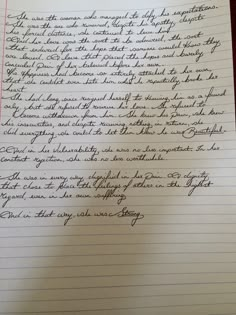 She was the woman who managed to defy his expectations.
She was the one who remained, despite his apathy, despite
his forced distance, she continued to love him
his love was the sort to be admired, the sort
that endured for the hope that someone would
love that the hopes and
pain of her beloved before her own.
His happiness had become so utterly attached to her own,
that she couldn't even hate him, while he repeatedly broke her
heart
She had long ago resigned herself to him as a friend
only, but she refused to him. She refused to
become withdrawn from him. She knew his pain, she knew
his insecurities, and despite receiving nothing in return, she
did everything she could to let him know he was Beautiful.
And in his vulnerability, she was no less important. In his
constant rejection, she was no less worthwhile.
She was in every way dignified in her pain. A dignity
that chose to place the feelings of others in the highest
regard, even in her own suffering.
And in that way, she was Strong.